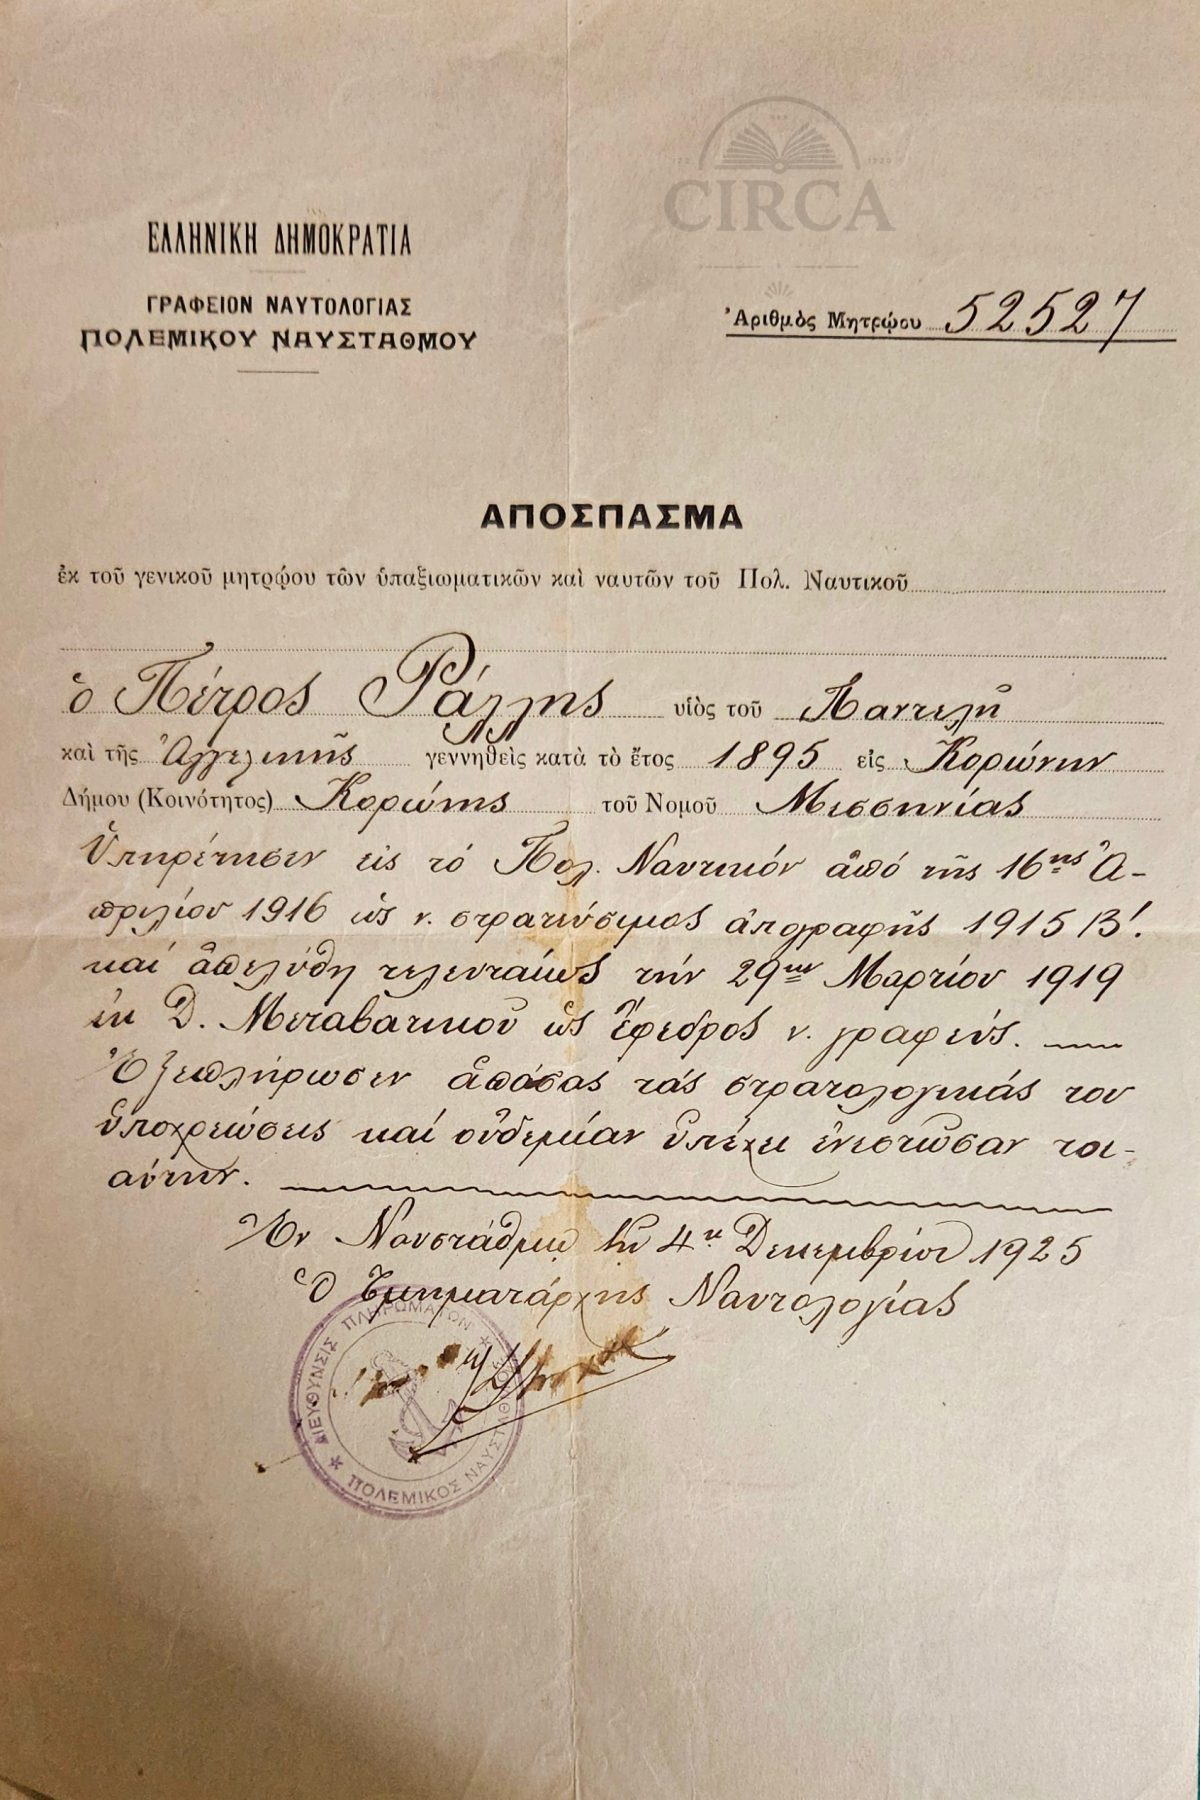 CIRCA
ΕΛΛΗΝΙΚΗ ΔΗΜΟΚΡΑΤΙΑ
ΓΡΑΦΕΙΟΝ ΝΑΥΤΟΛΟΓΙΑΣ
ΠΟΛΕΜΙΚΟΥ ΝΑΥΣΤΑΘΜΟΥ
Ἀριθμὸς Μητρῴου 52527
ΑΠΟΣΠΑΣΜΑ
ἐκ τοῦ γενικοῦ μητρῴου τῶν ὑπαξιωματικῶν καὶ ναυτῶν τοῦ Πολ. Ναυτικοῦ
ὁ Πέτρος Ράλλης υἱὸς τοῦ Παντελῆ
καὶ τῆς Ἀγγελικῆς γεννηθεὶς κατὰ τὸ ἔτος 1895 εἰς Κορώνην
Δήμου (Κοινότητος) Κορώνης τοῦ Νομοῦ Μεσσηνίας
Ὑπηρέτησεν εἰς τό Πολ. Ναυτικόν ἀπό τῆς 16ης Ἀ-
πριλίου 1916 ὡς ν. στρατεύσιμος ἀπογραφῆς 1915 Β'.
καί ἀπελύθη τελευταίως τήν 29ην Μαρτίου 1919
ἐκ Δ. Μεταβατικοῦ ὡς ἔφεδρος ν. γραφεύς.
Ἐξεπλήρωσεν ἁπάσας τάς στρατολογικάς του
ὑποχρεώσεις καί οὐδεμίαν ὑπέχει ἐνεστῶσαν τοι-
αύτην.
Ἐν Ναυστάθμῳ τῇ 4ῃ Δεκεμβρίου 1925
Ὁ Τμηματάρχης Ναυτολογίας
ΔΙΕΥΘΥΝΣΙΣ ΠΛΗΡΩΜΑΤΩΝ
ΠΟΛΕΜΙΚΟΣ ΝΑΥΣΤΑΘΜΟΣ